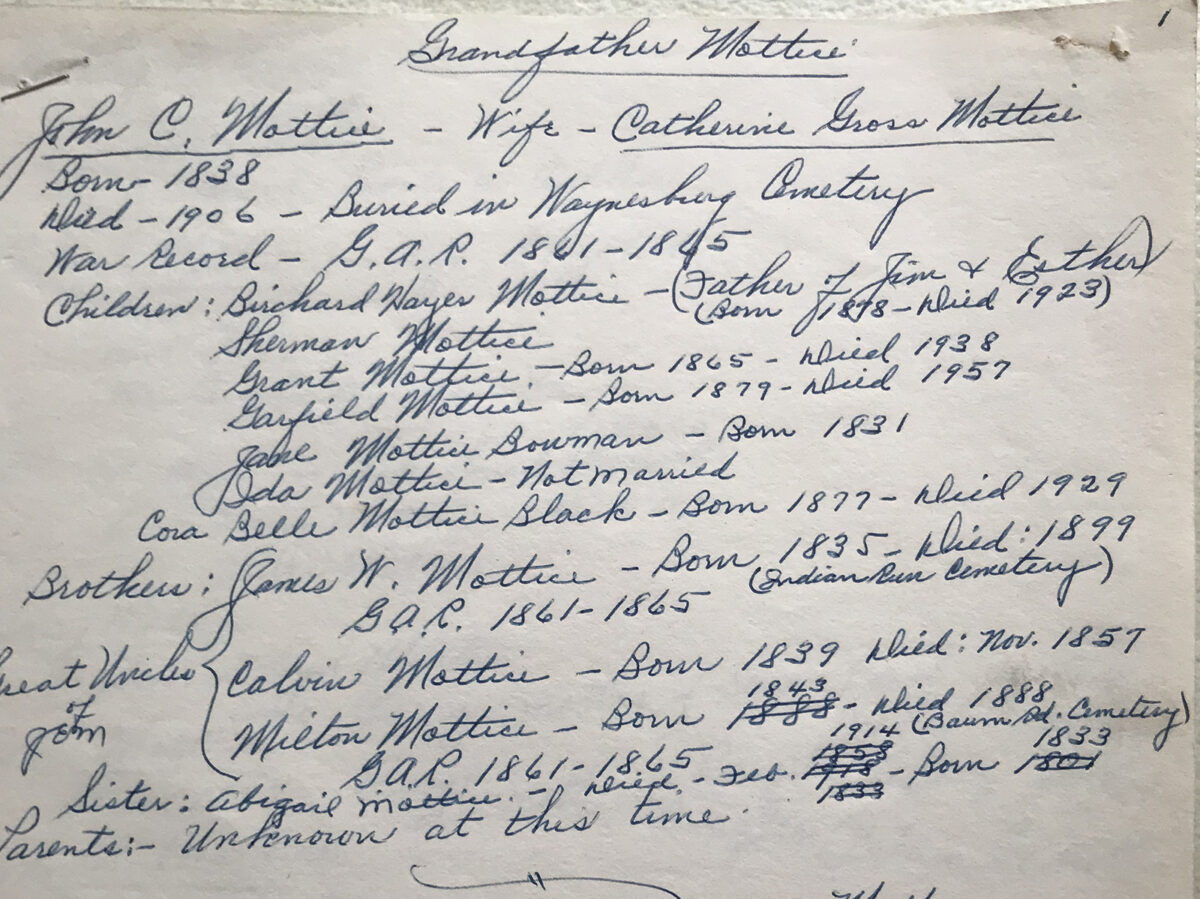 1
Grandfather Mottice
John C. Mottice - Wife - Catherine Gross Mottice
Born - 1838
Died - 1906 - Buried in Waynesburg Cemetery
War Record - G.A.R. 1861-1865
Children: Birchard Hayes Mottice - (Father of Jim & Esther)
(Born 1898 - Died 1923)
Sherman Mottice
Grant Mottice - Born 1865 - Died 1938
Garfield Mottice - Born 1879 - Died 1957
Jane Mottice Bowman - Born 1831
Ida Mottice - Not Married
Cora Belle Mottice Black - Born 1877 - Died 1929
Brothers: James W. Mottice - Born 1835 - Died: 1899
(Indian Run Cemetery)
G.A.R. 1861-1865
Great Uncles of Jim
Calvin Mottice - Born 1839 Died: Nov. 1857
Milton Mottice - Born 1843 - Died 1888
(Baum Rd. Cemetery)
G.A.R. 1861-1865
Sister: Abigail Mottice - Died - Feb. 1914 - Born 1833
Parents:- Unknown at this time.